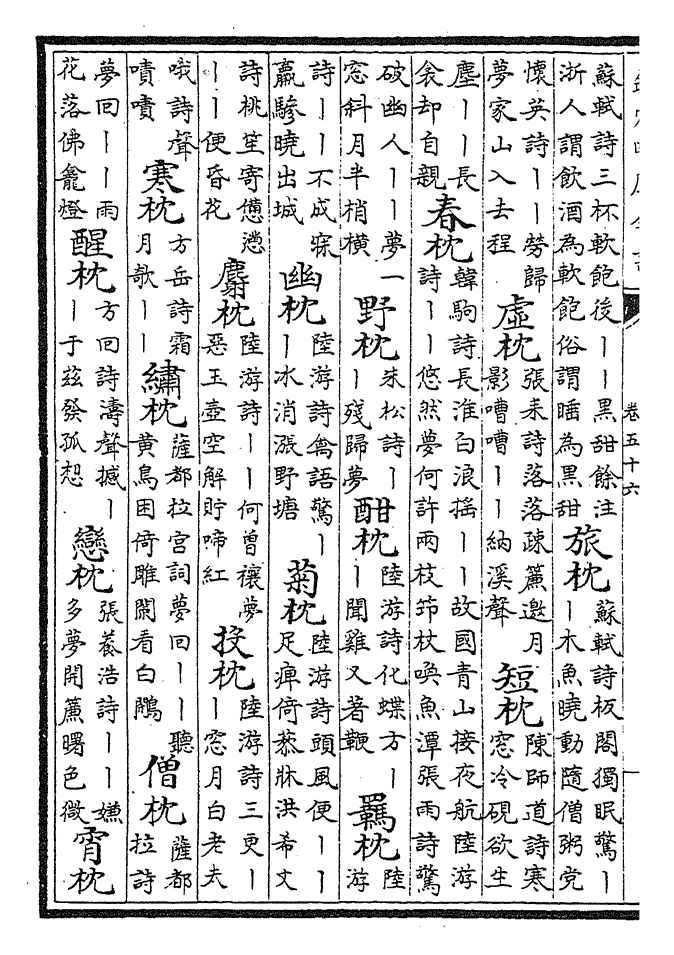 卷五十六
蘇軾詩三杯軟飽後丨丨黑甜餘注
浙人謂飲酒為軟飽俗謂睡為黑甜
旅枕
蘇軾詩板閣獨眠驚丨
丨木魚曉動隨僧粥党
懷英詩丨丨勞歸
夢家山入去程
虛枕
張耒詩落落疎簾邀月
影嘈嘈丨丨納溪聲
短枕
陳師道詩寒
窓冷硯欲生
塵丨丨長
衾却自親
春枕
韓駒詩長淮白浪揺丨丨故國青山接夜航陸游
詩丨丨悠然夢何許兩枝笻杖喚魚潭張雨詩驚
破幽人丨丨夢一
窓斜月半梢横
野枕
朱松詩丨
丨殘歸夢
酣枕
陸游詩化蝶方丨
丨聞雞又著鞭
羈枕
陸
游
詩丨丨不成寐
羸驂曉出城
幽枕
陸游詩禽語驚丨
丨氷消漲野塘
菊枕
陸游詩頭風便丨丨
足痺倚蔾牀洪希文
詩桃笙寄憊懣
丨丨便昏花
麝枕
陸游詩丨丨何曾禳夢
惡玉壺空解貯啼紅
投枕
陸游詩三更丨
丨窓月白老夫
哦詩聲
嘖嘖
寒枕
方岳詩霜
月欹丨丨
繡枕
薩都拉宫詞夢回丨丨聽
黄鳥困倚雕闌看白鷴
僧枕
薩都
拉詩
夢回丨丨雨
花落佛龕燈
醒枕
方回詩濤聲撼丨
丨于兹發孤想
戀枕
張養浩詩丨丨嫌
多夢開簾曙色微
宵枕